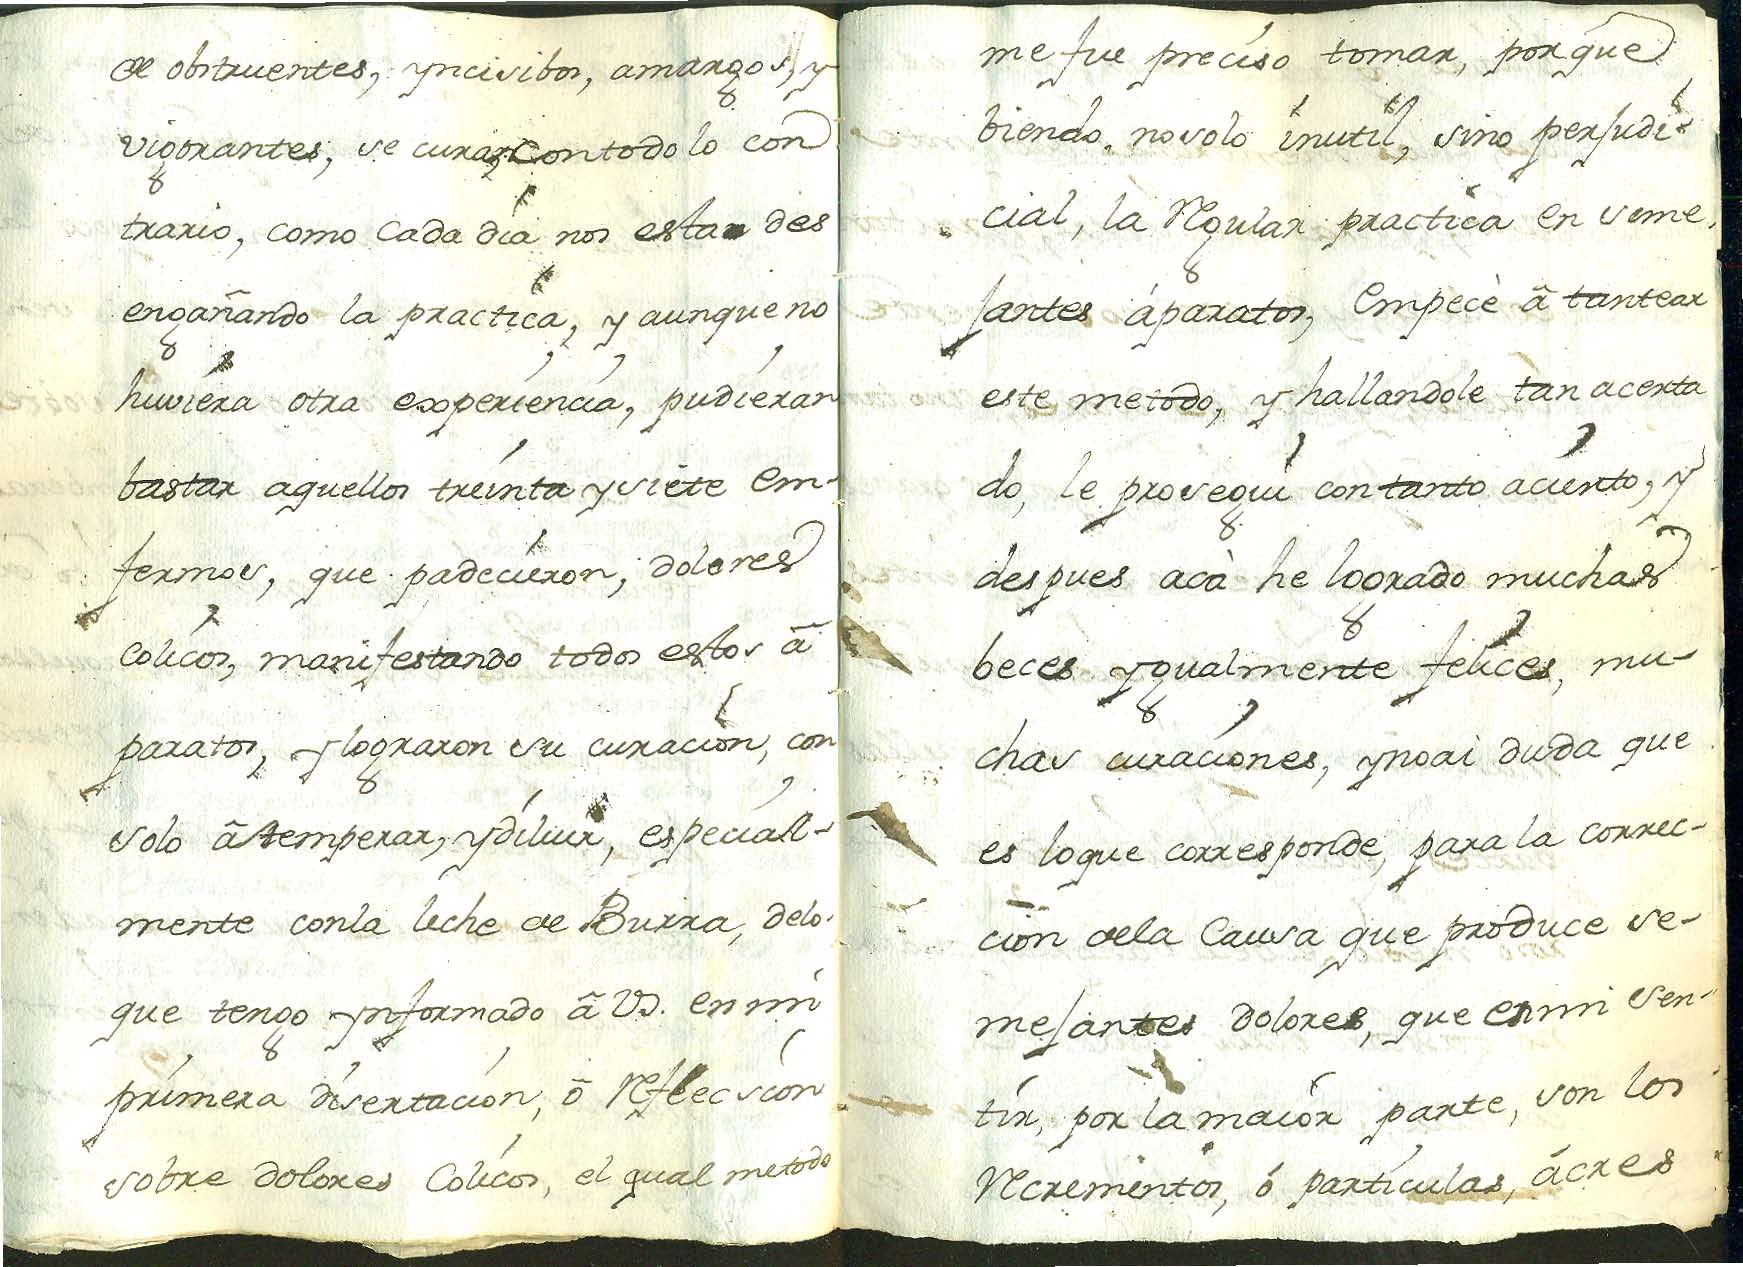 de obstruentes, yncisibos, amargos, y
vigorantes, se curan, con todo lo con
trario, como cada dia nos estan des
engañando la practica, y aunque no
huviera otra experiencia, pudieran
bastar aquellos treinta y siete em-
fermos, que padecieron, dolores
colicos, manifestando todos estos ã
paratos, y lograron su curacion, con
solo ã temperar, y diluir, especiall-
mente con la leche de Burra, delo
que tengo ynformado ã Vd. en mi
primera disertacion, õ Reflecsion
sobre dolores Colicos, el qual metodo
me fue preciso tomar, porque
biendo, no solo inutil, sino perjudi-
cial, la Regular practica en seme.
jantes áparatos, Empecè ã tantear
este metodo, y hallandole tan acerta
do, le prosegui con tanto acierto, y
despues acà he logrado muchas
beces ygualmente felices, mu-
chas curaciones, y no ai duda que
es lo que corresponde, para la correc-
cion de la Causa que produce se-
mejantes dolores, que en mi sen-
tir, por la maior parte, son los
Recrementos, ó particulas, ácres